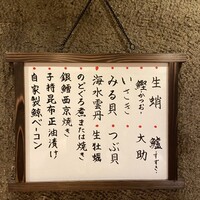 生蛸・鱸すずき
鰹かつお・大助
いさき
みる貝・つぶ貝
海水雲丹・生牡蠣
のどぐろ煮または焼き
銀鱈西京焼き
子持昆布正油漬け
自家製鯨ベーコン